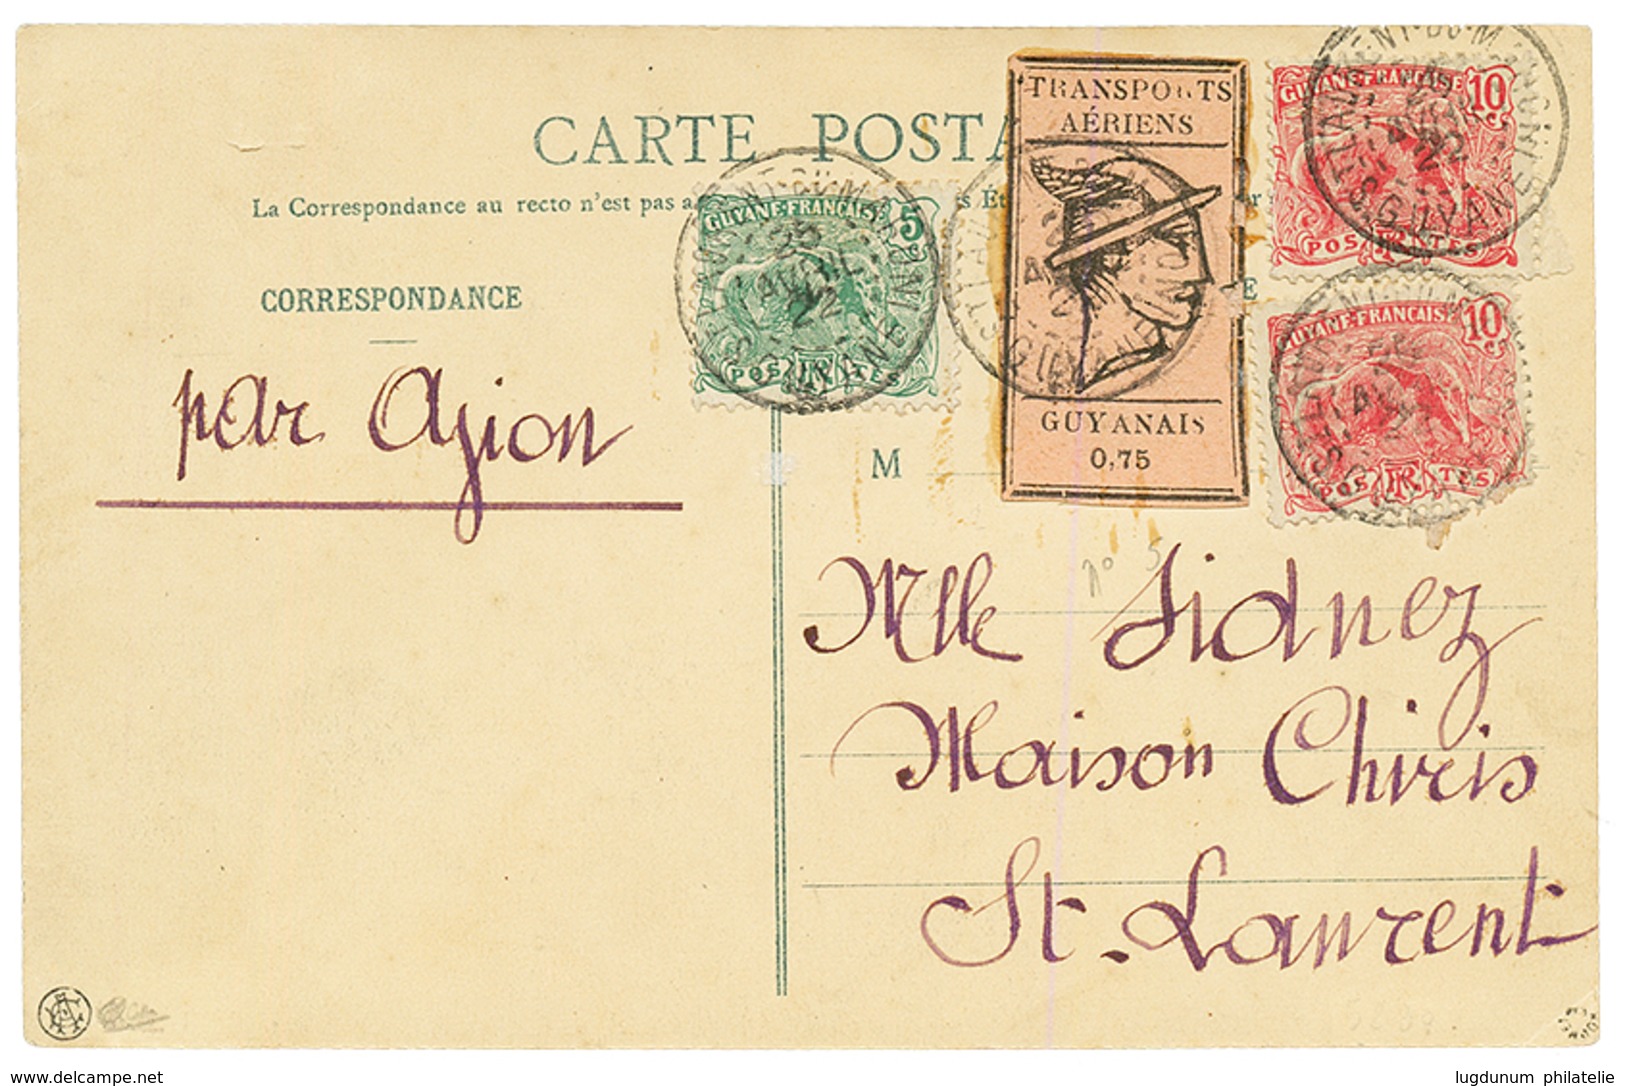 CARTE POSTA
La Correspondance au recto n'est pas a
s Ét
er
CORRESPONDANCE
E
GUYANE-FRANÇAISE 5
POSTES
TRANSPORTS
AÉRIENS
GUYANAIS
0,75
GUYANE-FRANÇAISE 10
POSTES
GUYANE-FRANÇAISE 10
POSTES
22
par Avion
M
no 5
Mlle Sidnez
Maison Chiris
St. Laurent
www.delcampe.net
lugdunum philatelie